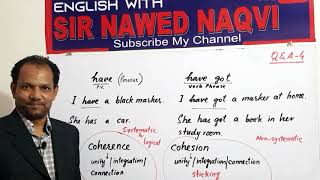 ENGLISH WITH
SIR NAWED NAQVI
Subscribe My Channel
Q&A-4
have (Finite) have got
F.V. verb Phrase
I have a black marker. I have got a marker at home.
She has a car. She has got a book in her
study room.
Systematic & logical
Non-systematic
Coherence Cohesion
unity/integration/ unity/integration/connection
Connection sticking